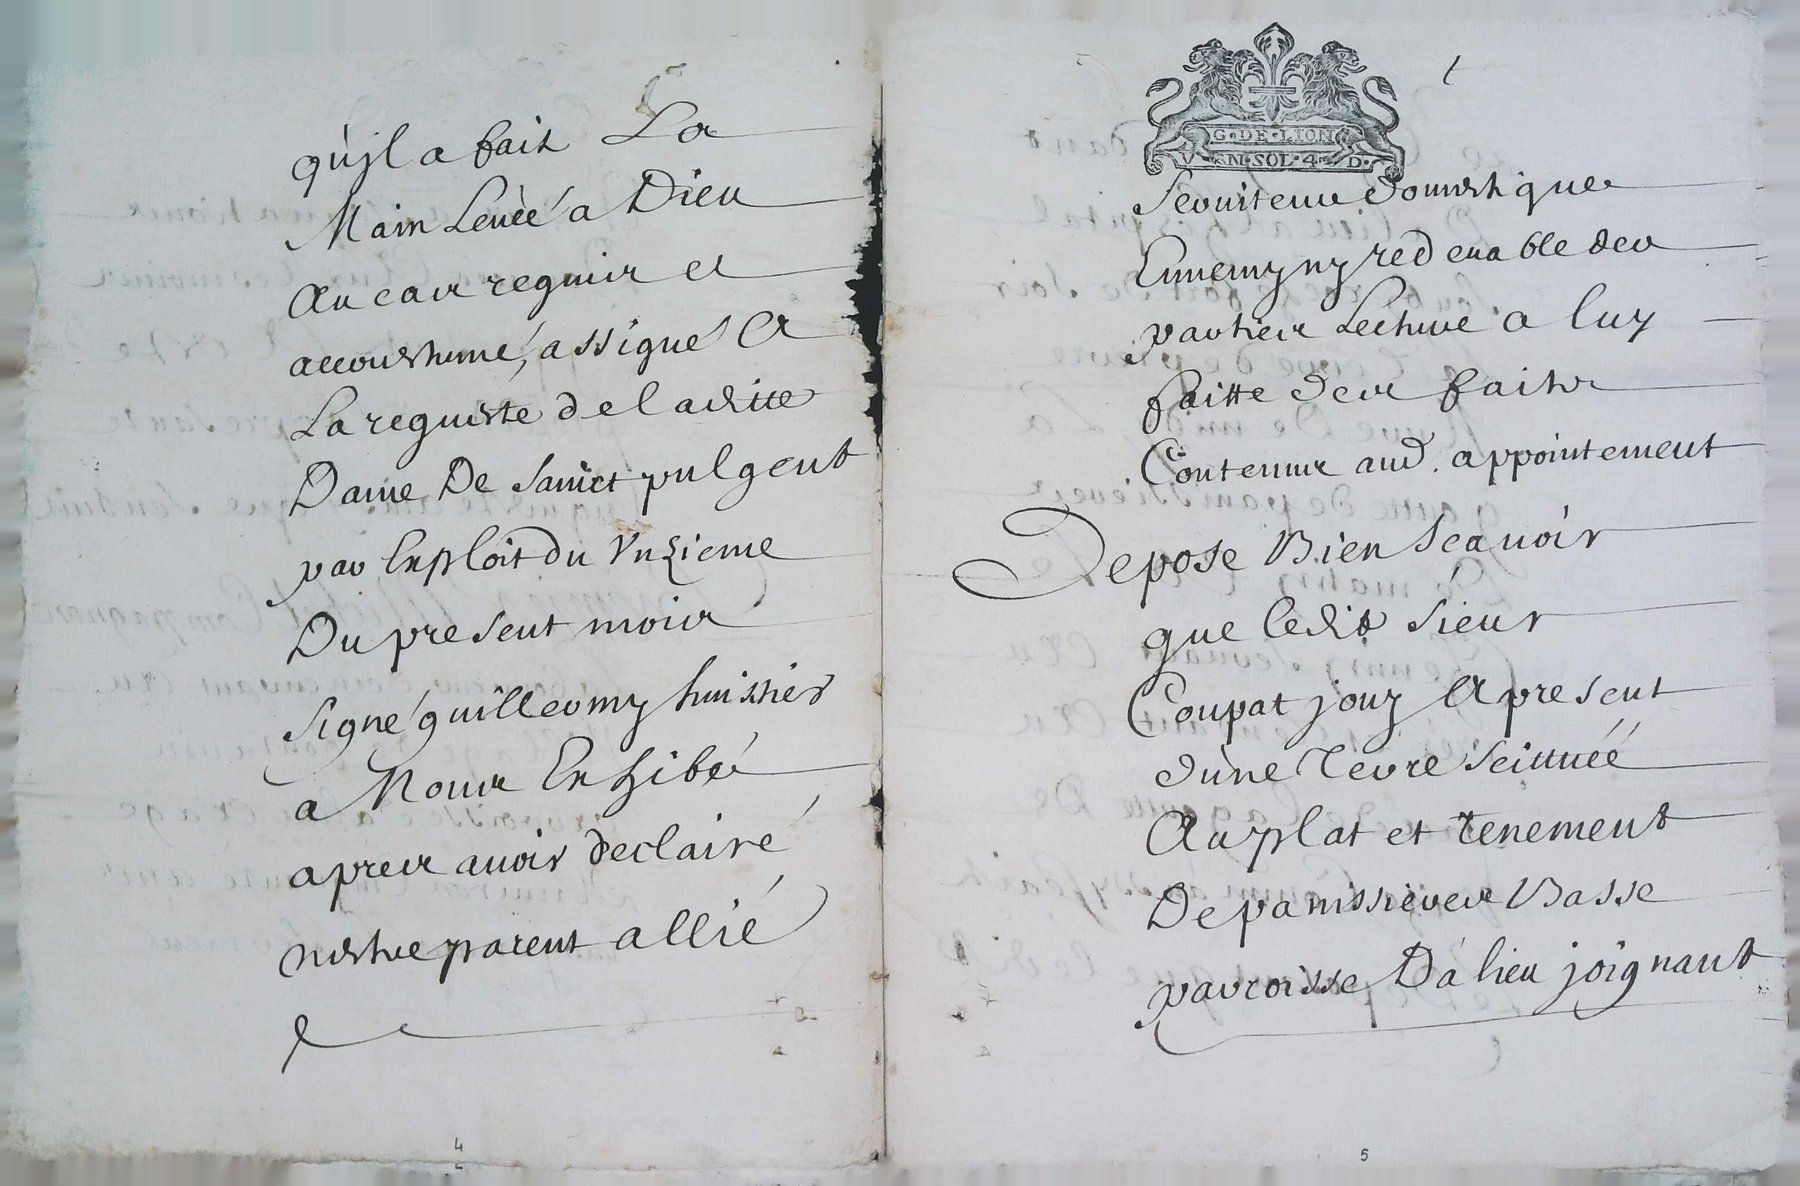 qu'jl a fait La
Main Levée a Dieu
Au cas requis et
accoustumé, assigné A
La requeste de laditte
Dame De Sainct pulgent
par Exploit du Vnzieme
Du present mois
signé guilleomy huissier
a Nous Exhibé
apres auoir declairé
nestre parent allié
4
G·DE·LION
VN·SOL·4·D·
seruiteur domestique
Ennemy ny redeuable des
parties Lecture a luy
faitte des faits
Contenus aud. appointement
Depose Bien scauoir
que ledit sieur
Coupat jouy Apresent
dune Terre scittuéé
Au plat et tenement
De panissieres Basse
parroisse Dalieu joignant
5